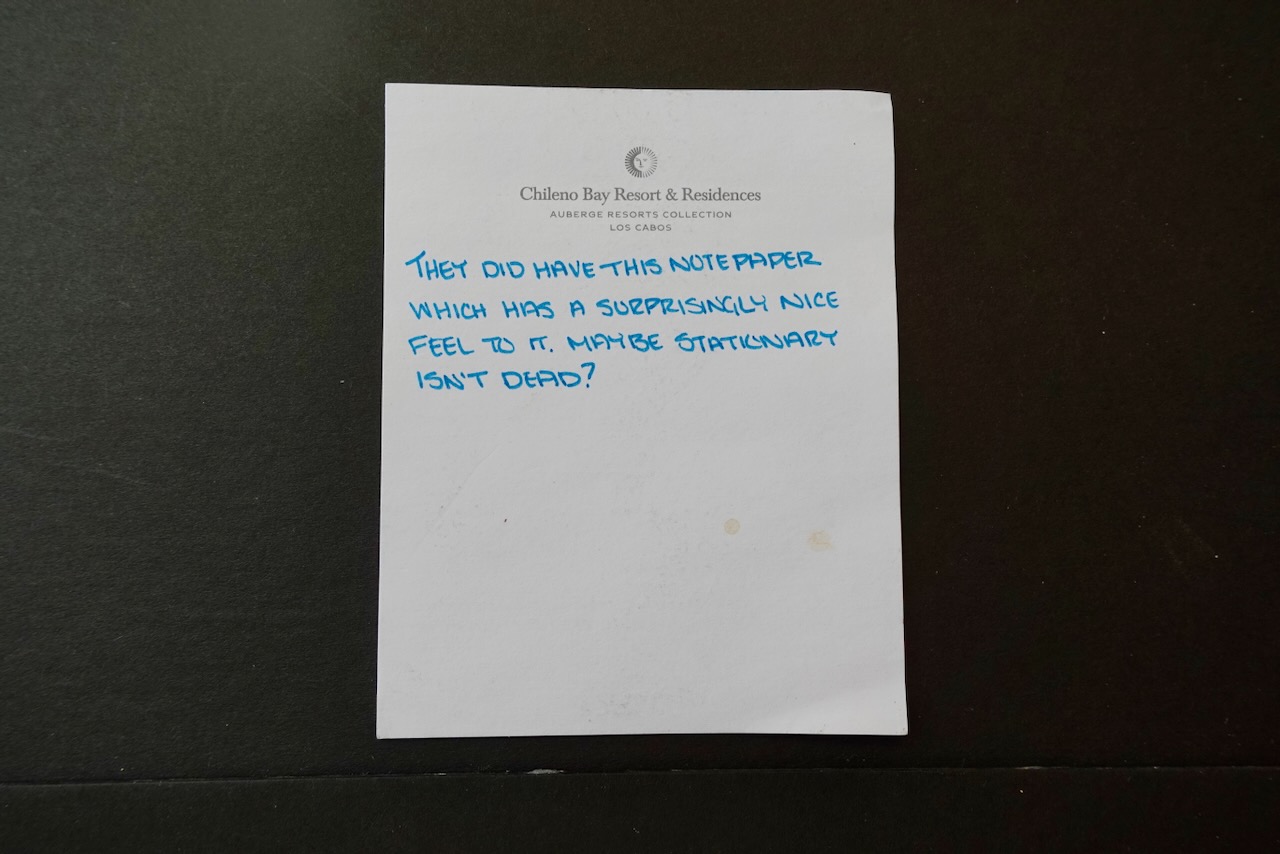 Chileno Bay Resort & Residences
AUBERGE RESORTS COLLECTION
LOS CABOS
THEY DID HAVE THIS NOTEPAPER
WHICH HAS A SURPRISINGLY NICE
FEEL TO IT. MAYBE STATIONARY
ISN'T DEAD?